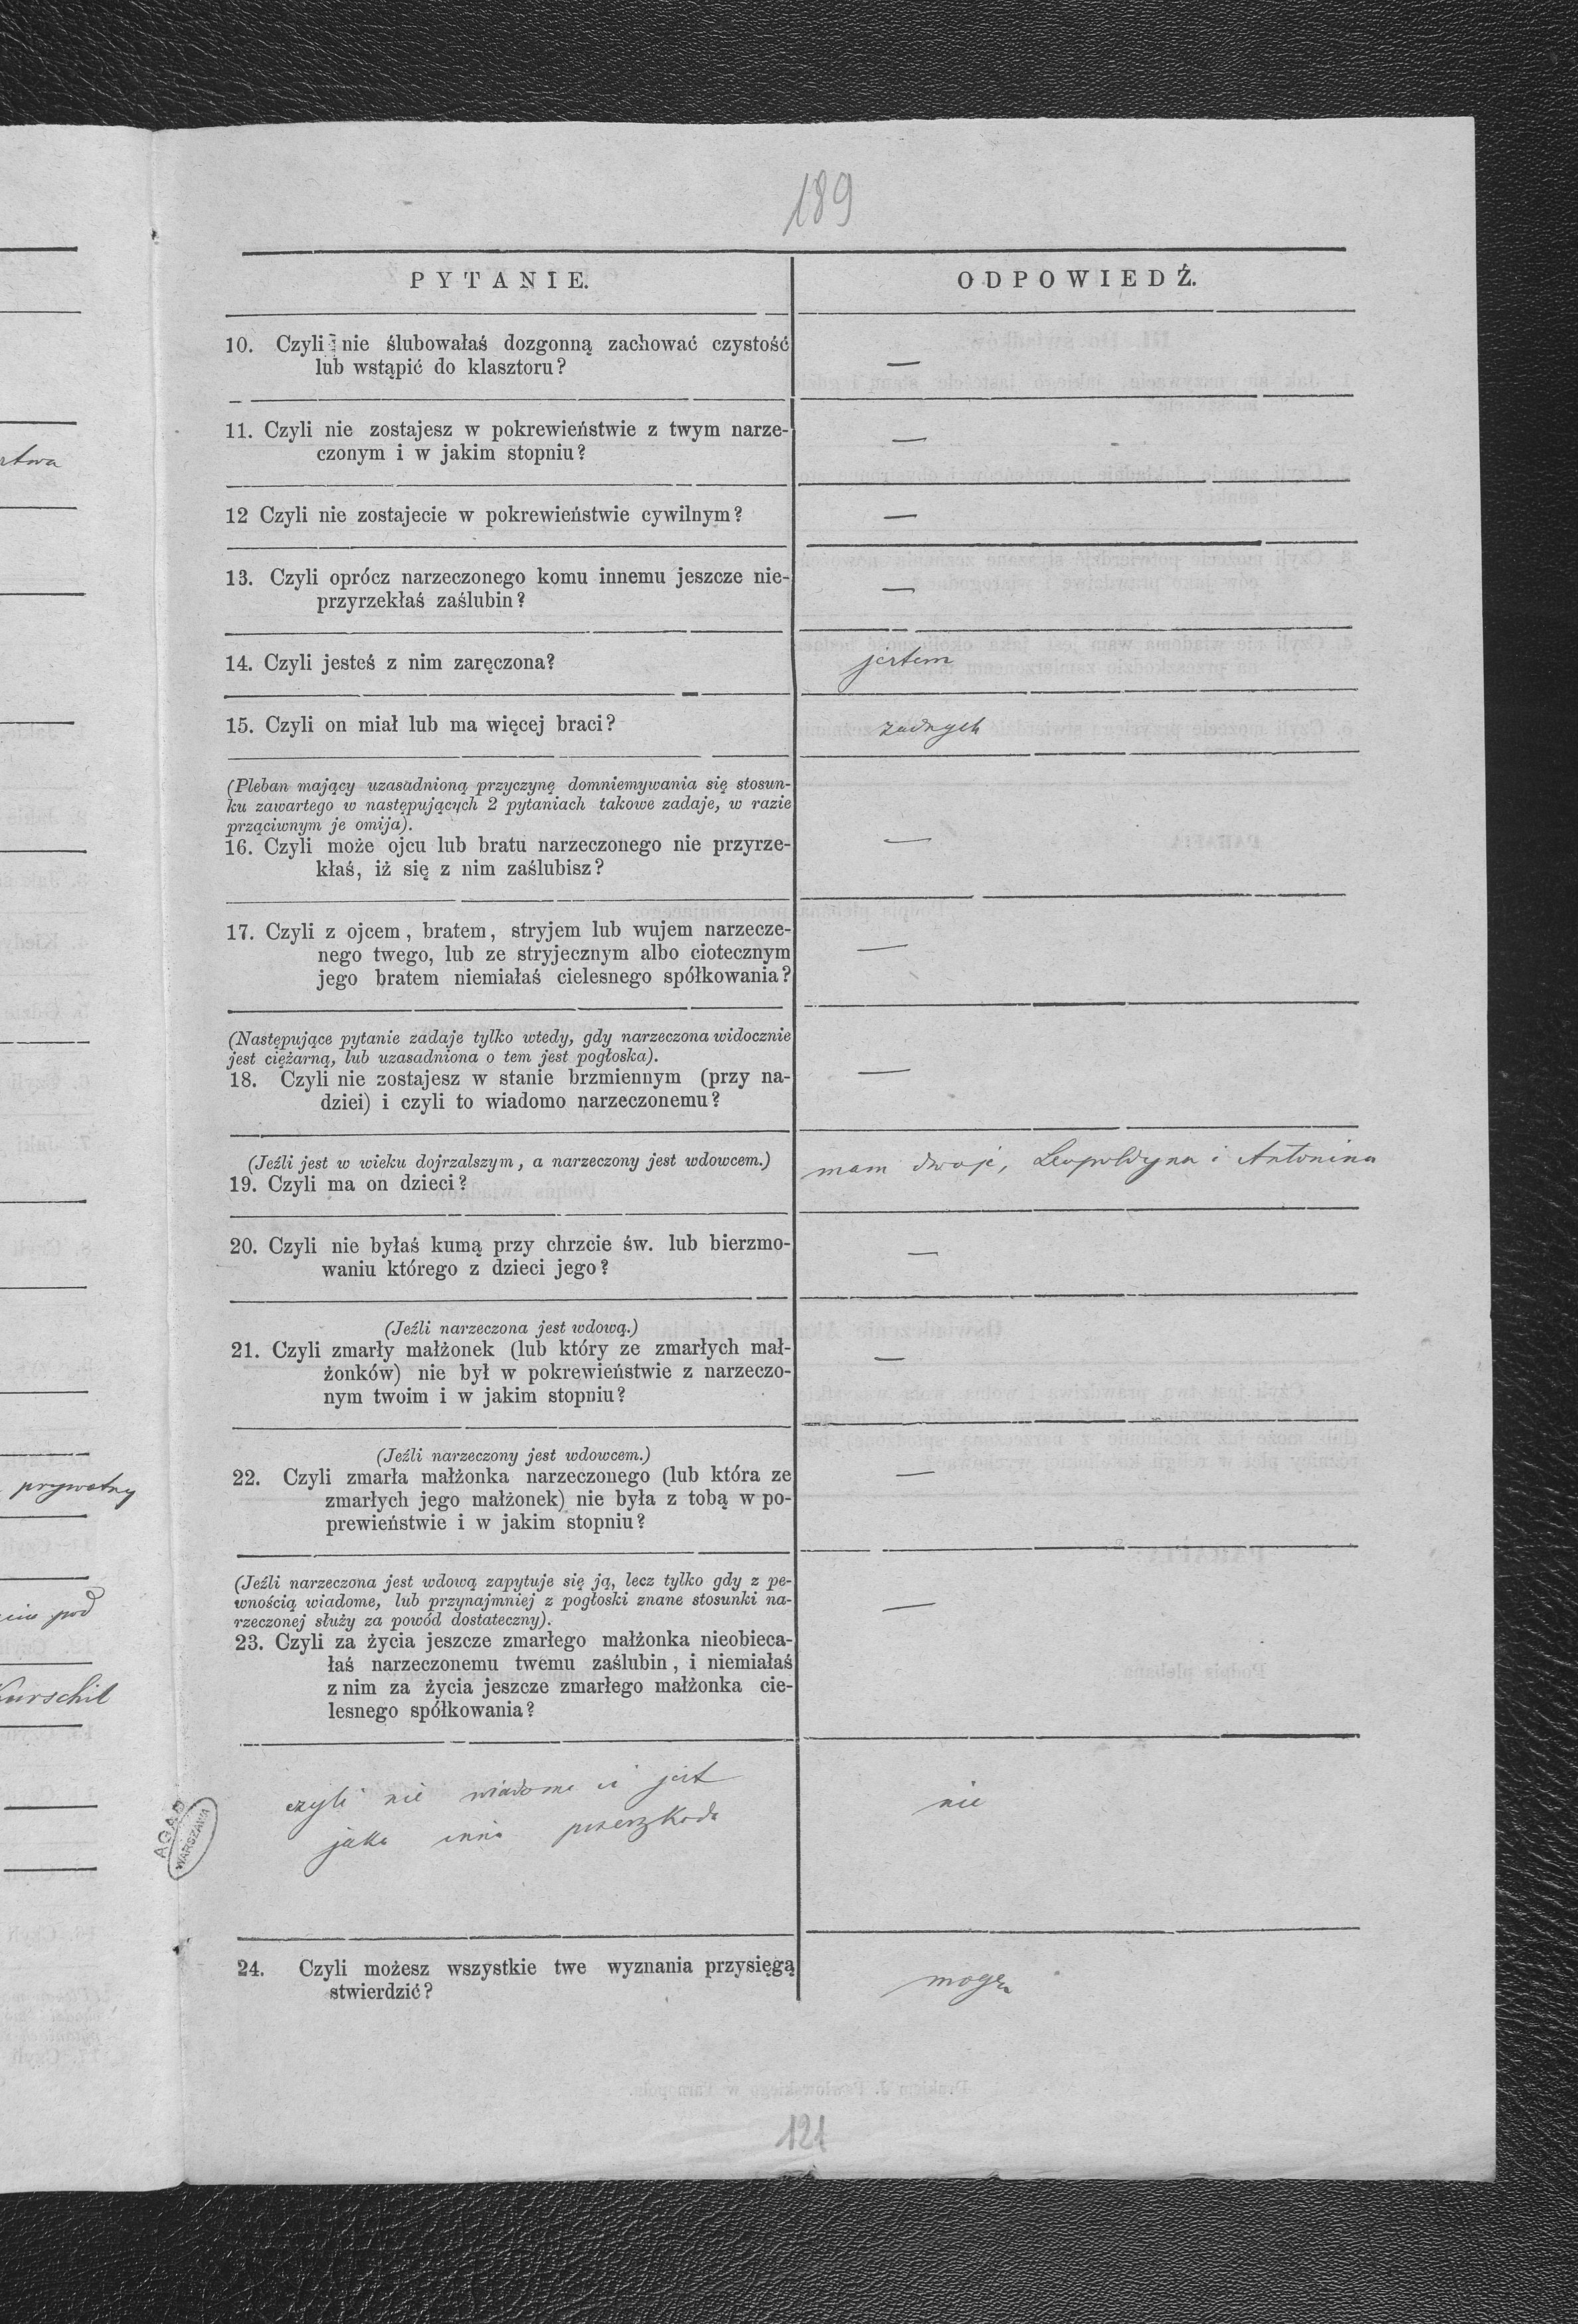 189
PYTANIE.
ODPOWIEDŹ.
10. Czyli nie ślubowałaś dozgonną zachować czystość
lub wstąpić do klasztoru?
—
11. Czyli nie zostajesz w pokrewieństwie z twym narze-
czonym i w jakim stopniu?
—
12 Czyli nie zostajecie w pokrewieństwie cywilnym?
—
13. Czyli oprócz narzeczonego komu innemu jeszcze nie-
przyrzekłaś zaślubin?
—
14. Czyli jesteś z nim zaręczona?
jestem
15. Czyli on miał lub ma więcej braci?
żadnych
(Pleban mający uzasadnioną przyczynę domniemywania się stosun-
ku zawartego w następujących 2 pytaniach takowe zadaje, w razie
prząciwnym je omija).
16. Czyli może ojcu lub bratu narzeczonego nie przyrze-
kłaś, iż się z nim zaślubisz?
—
17. Czyli z ojcem, bratem, stryjem lub wujem narzecze-
nego twego, lub ze stryjecznym albo ciotecznym
jego bratem niemiałaś cielesnego spółkowania?
—
(Następujące pytanie zadaje tylko wtedy, gdy narzeczona widocznie
jest ciężarną, lub uzasadniona o tem jest pogłoska).
18. Czyli nie zostajesz w stanie brzmiennym (przy na-
dziei) i czyli to wiadomo narzeczonemu?
—
(Jeźli jest w wieku dojrzalszym, a narzeczony jest wdowcem.)
19. Czyli ma on dzieci?
mam dwoje, Leopoldyna i Antonina
20. Czyli nie byłaś kumą przy chrzcie św. lub bierzmo-
waniu którego z dzieci jego?
—
(Jeźli narzeczona jest wdową.)
21. Czyli zmarły małżonek (lub który ze zmarłych mał-
żonków) nie był w pokrewieństwie z narzeczo-
nym twoim i w jakim stopniu?
—
(Jeźli narzeczony jest wdowcem.)
22. Czyli zmarła małżonka narzeczonego (lub która ze
zmarłych jego małżonek) nie była z tobą w po-
prewieństwie i w jakim stopniu?
—
(Jeźli narzeczona jest wdową zapytuje się ją, lecz tylko gdy z pe-
wnością wiadome, lub przynajmniej z pogłoski znane stosunki na-
rzeczonej służy za powód dostateczny).
23. Czyli za życia jeszcze zmarłego małżonka nieobieca-
łaś narzeczonemu twemu zaślubin, i niemiałaś
z nim za życia jeszcze zmarłego małżonka cie-
lesnego spółkowania?
—
czyli nie wiadome ci jest
jaka inna przeszkoda
nie
24. Czyli możesz wszystkie twe wyznania przysięgą
stwierdzić?
mogę
121
AGAD
WARSZAWA
prywatny
pod